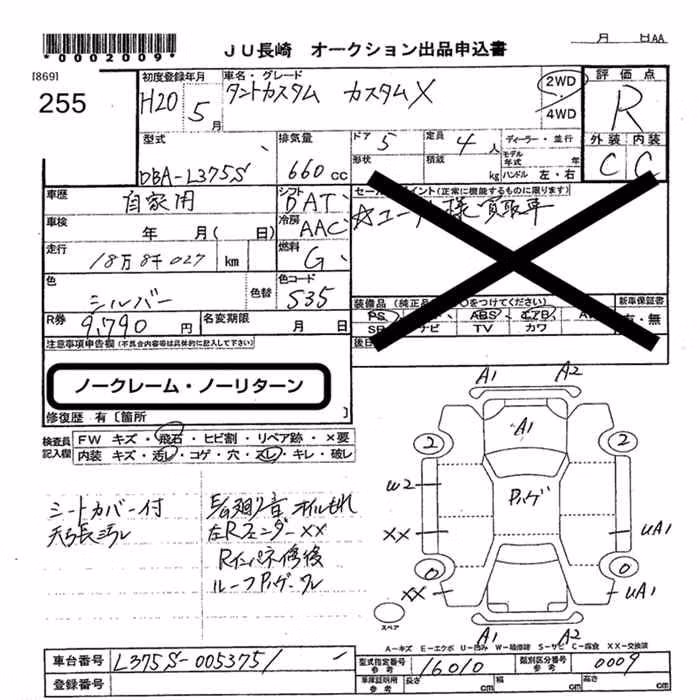 *0002009*
JU長崎 オークション出品申込書
月 日AA
[869]
255
初度登録年月
H20 5月
車名・グレード
タントカスタム カスタムX
2WD
4WD
評価点
R
外装 内装
C C
型式
DBA-L375S
排気量
660 CC
ドア 5
定員 4 人
形状
積載 kg
ディーラー・並行
モデル年式 年
ハンドル 左・右
車歴
自家用
シフト
DAT
セールスポイント(正常に機能するものに限ります)
☆ユーザー様買取車
車検
年 月( 日)
冷房
AAC
走行
18万8千027 km
燃料
G
色
シルバー
色替
色コード
S35
装備品(純正品 ○をつけてください)
新車保証書
有・無
PS ABS エアB
SR ナビ TV カワ
R券
9,790 円
名変期限
月 日
後日
注意事項申告欄(不具合内容等は具体的に記入して下さい)
ノークレーム・ノーリターン
修復歴 有〔箇所 〕
検査員記入欄
FW キズ・飛石・ヒビ割・リペア跡・×要
内装 キズ・汚レ・コゲ・穴・スレ・キレ・破レ
シートカバー付
天張汚レ
オイルもれ
左Rフェンダーxx
Rインパネ修後
A1 A2
A1
2 2
W2
Pハゲ
XX UA1
0 0
XX UA1
A1 A2
スペア
A-キズ E-エクボ U-凹み W-補修跡 S-サビ C-腐食 XX-交換済
車台番号
L375S-0053751
登録番号
型式指定番号
参考
16010
類別区分番号
参考
0009
車庫証明用
参考
長さ cm 幅 cm 高さ cm